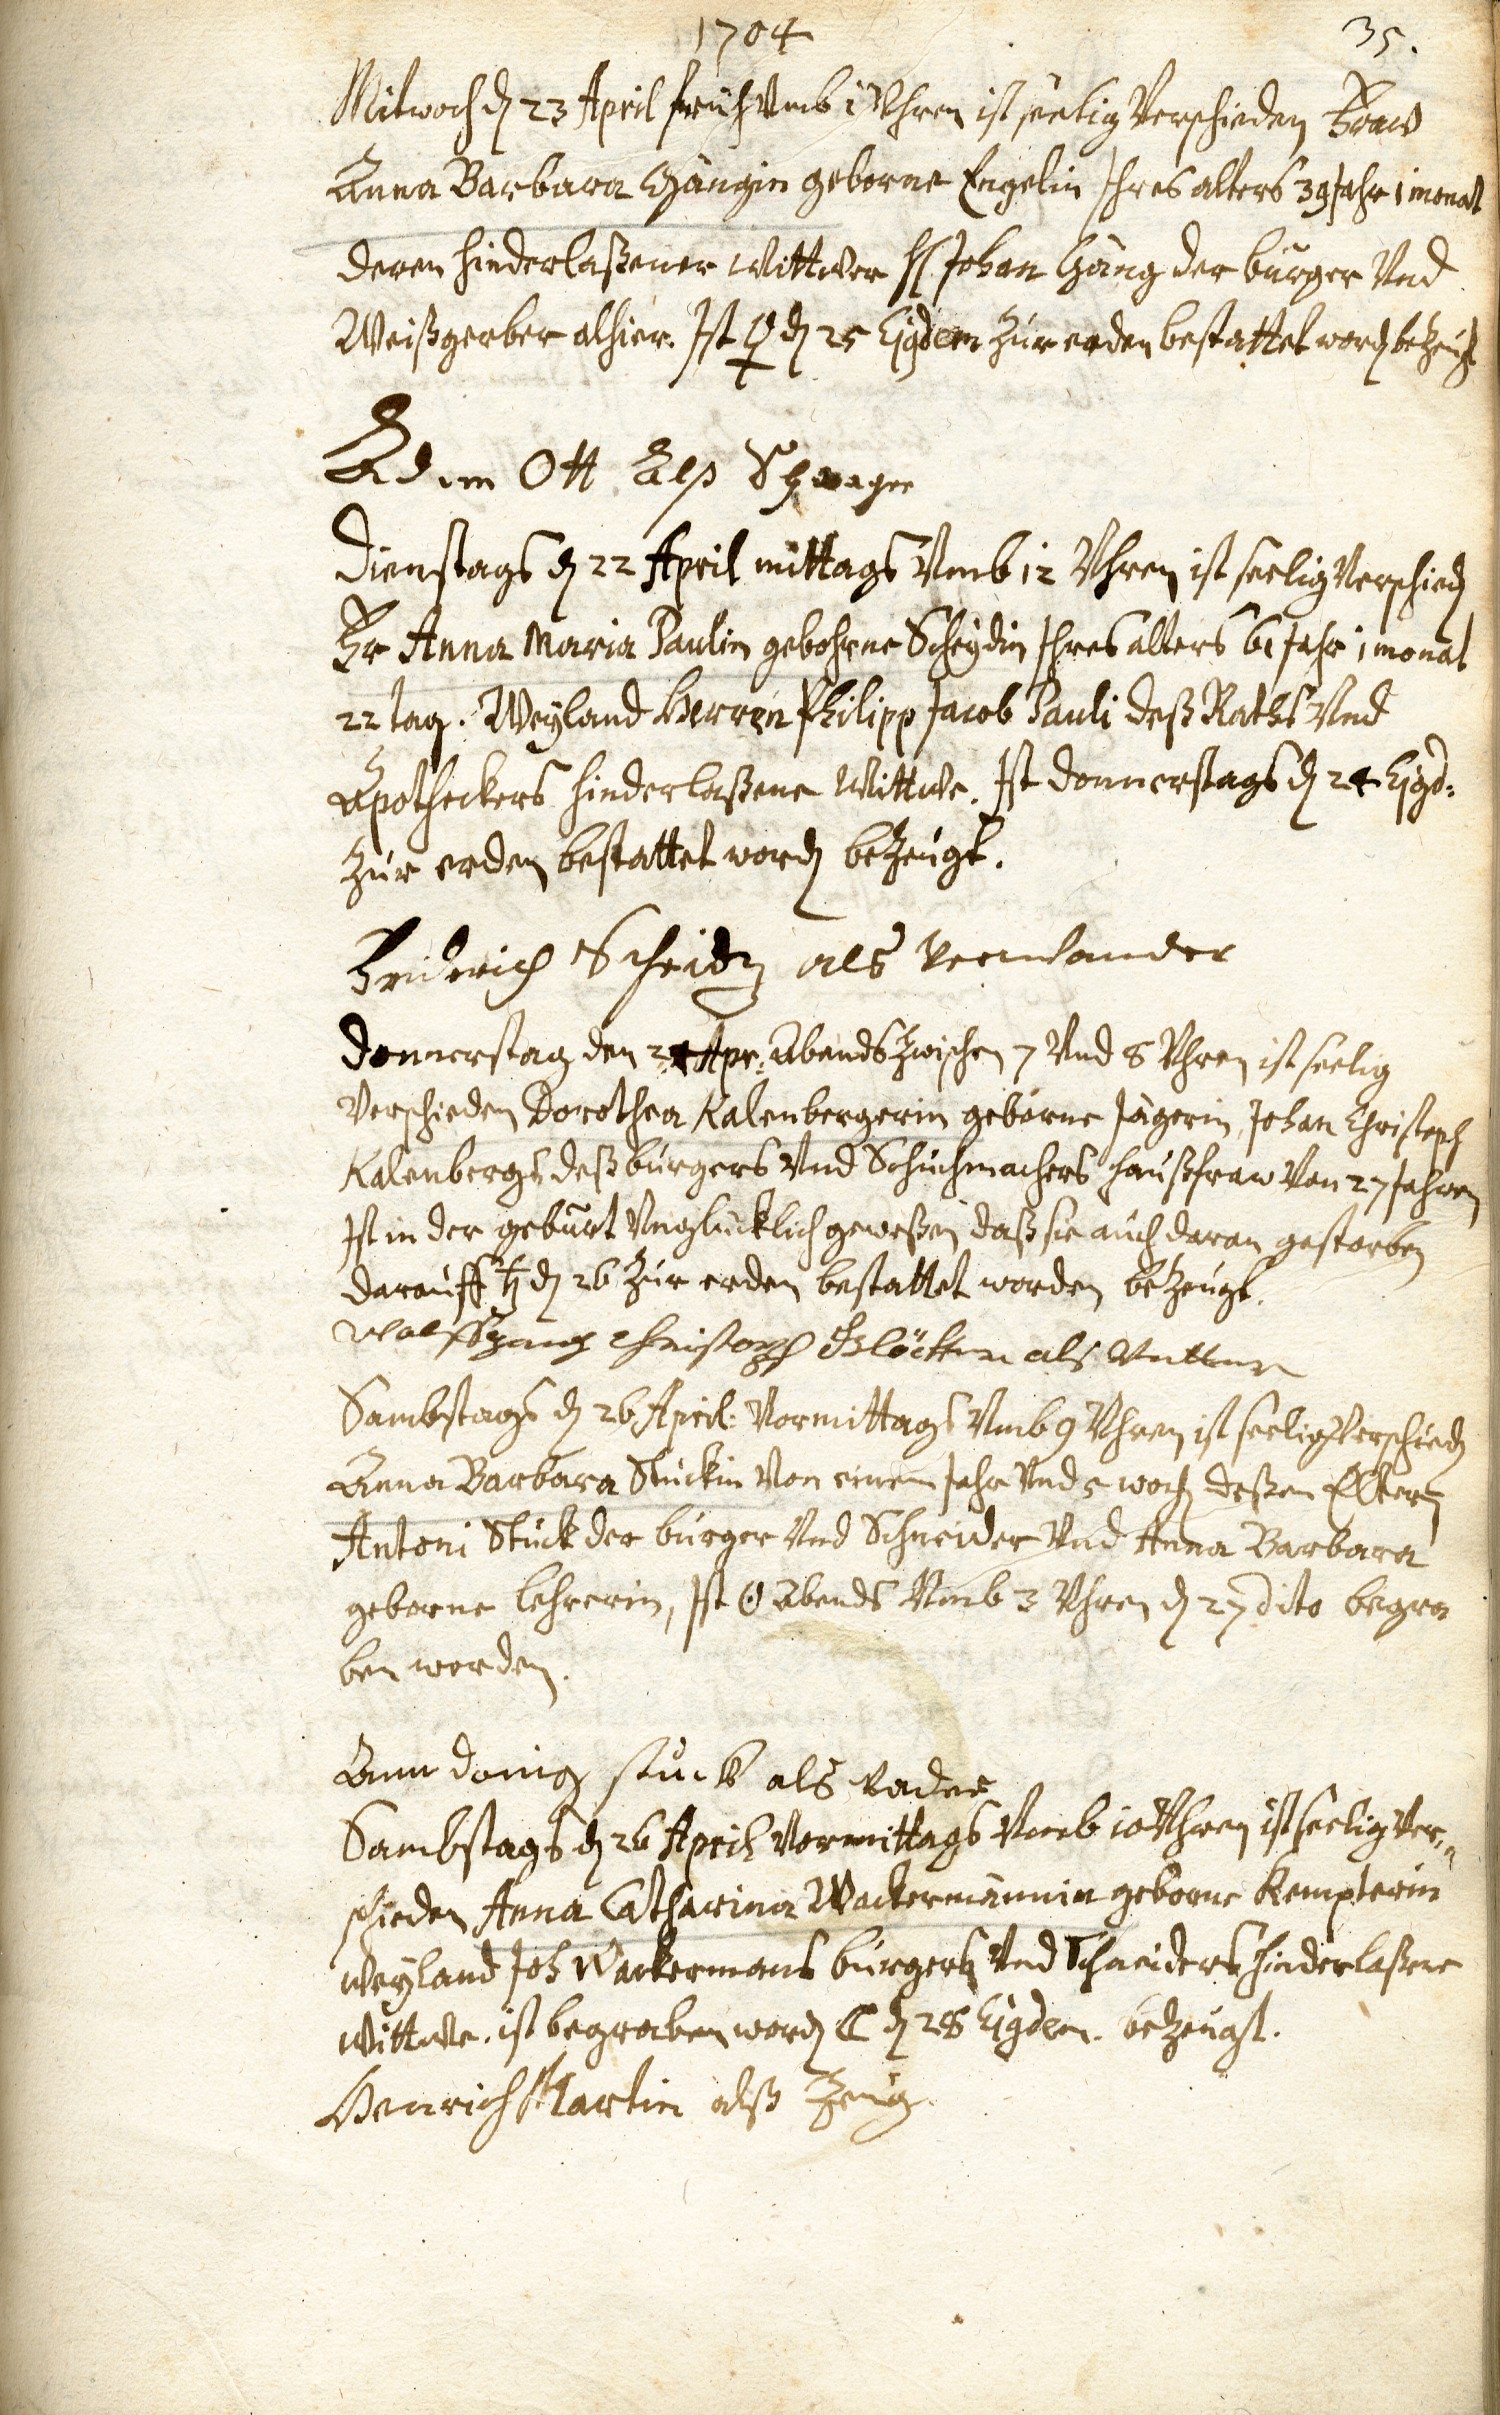 1704
35.
Mitwoch dn 23 April früh Vmb 1 Vhren ist seelig Verschieden Fraw
Anna Barbara Häugin geborne Engelin Ihres alters 39 Jahr 1 monat
deren hinderlaßener Wittwer H Johan Häug der burger Vnd
Weißgerber alhier. Ist ♀ dn 25 Ejgdem zur erden bestattet word bezeugt
Adam Ott Alß Schwager
Dienstags dn 22 April mittags Vmb 12 Vhren ist seelig Verschied
Fr Anna Maria Paulin gebohrne Scheydin Ihres alters 61 Jahr 1 monat
22 tag. Weyland Herren Philipp Jacob Pauli deß Raths Vnd
Apotheckers hinderlaßene Wittwe. Ist Donnerstags dn 24 Ejgd:
zur erden bestattet word bezeugt.
Friderich Scheidt als Verwander
Donnerstag den 24 Apr: Abends zwischen 7 Vnd 8 Vhren ist seelig
Verschieden Dorothea Kalenbergerin geborne Jägerin, Johan Christoph
Kalenbergs deß burgers Vnd Schuchmachers haußfraw Von 27 Jahren
Ist in der geburt Vnglücklich geweßen daß sie auch daran gestorben
darauff ♄ dn 26 zur erden bestattet worden bezeugt.
Wolffgang Christoph als
Sambstags dn 26 April: Vormittags Vmb 9 Vhren ist seelig Verschied
Anna Barbara Stückin Von einem Jahr Vnd 5 woch deßen Eltern
Antoni Stück der burger Vnd Schneider Vnd Anna Barbara
geborne Lehrerin, Ist ☉ Abends Vmb 3 Vhren dn 27 dito begra
ben worden.
Ann donig stück als vader
Sambstags dn 26 April Vormittags Vmb 10 Vhren ist seelig Ver=
schieden Anna Catharina Wackermännin geborne Kempterin
Weyland Joh Wackermans burgers Vnd Schneiders hinderlaßene
Wittwe. ist begraben word ☾ dn 28 Ejgdem. bezeugt.
Henrich Martin alß Zeug